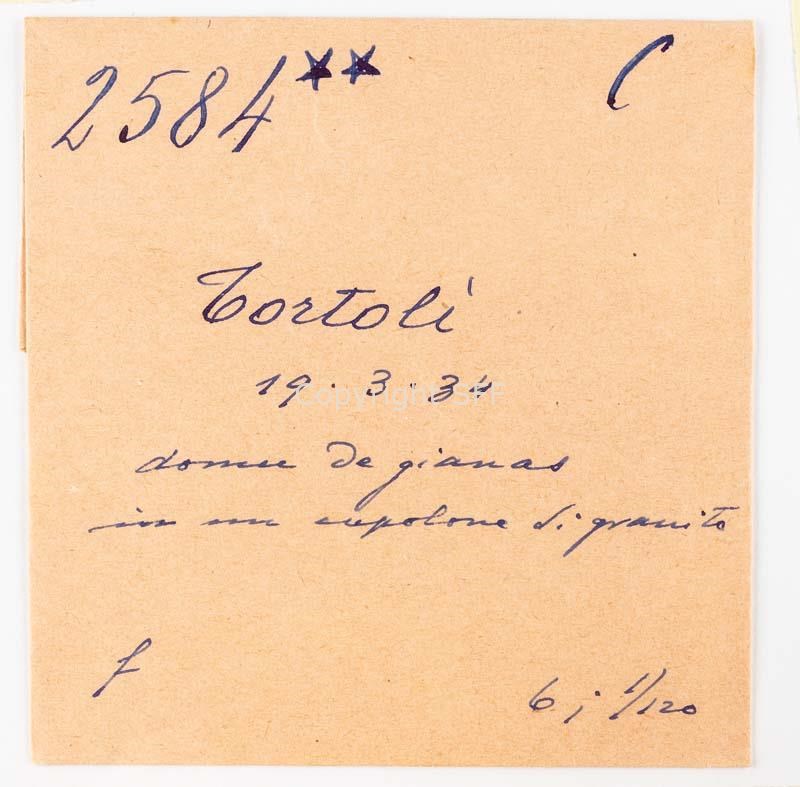 2584** C
Tortolì
19.3.34
domu de gianas
in un cupolone di granito
f
6; 1/120
Copyright SFF